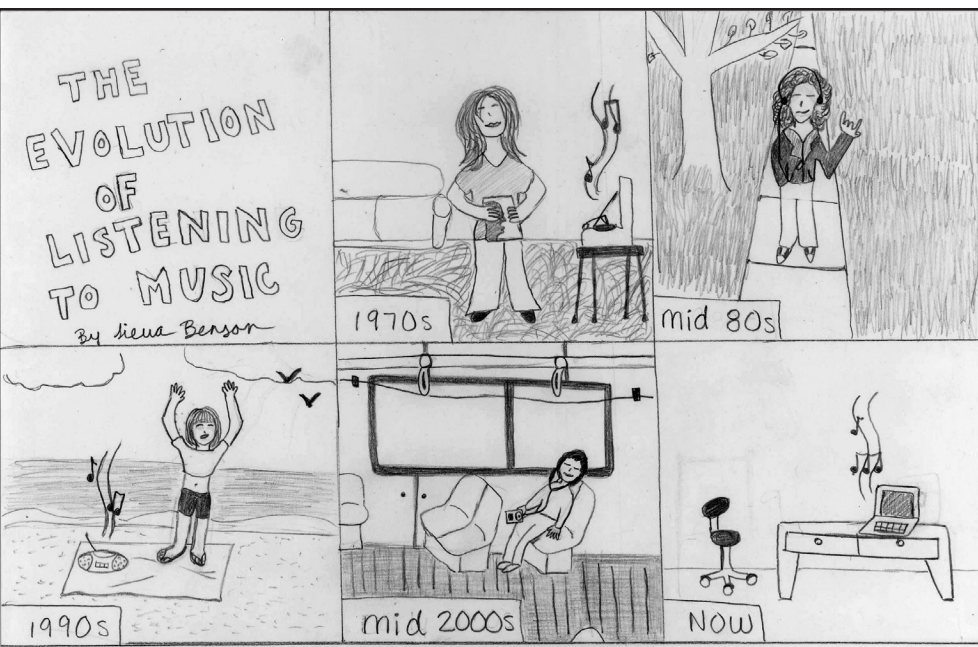 THE
EVOLUTION
OF
LISTENING
TO MUSIC
By Benson
1970s
mid 80s
1990s
mid 2000s
NOW